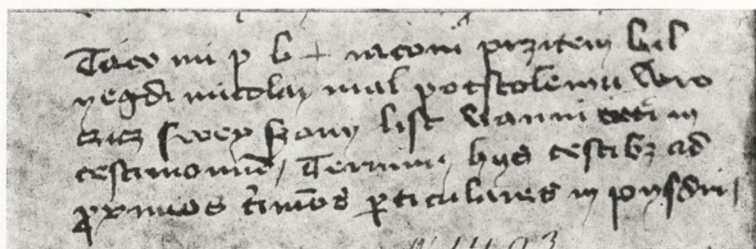 Taco mi p b + iacom przitem bil
yegdi micolay mal potstolemu Wro
cicz swey szony list Wanni in
testimoniū, Terminū hys testibz ad
pximos t'minos pticulares in pysdri